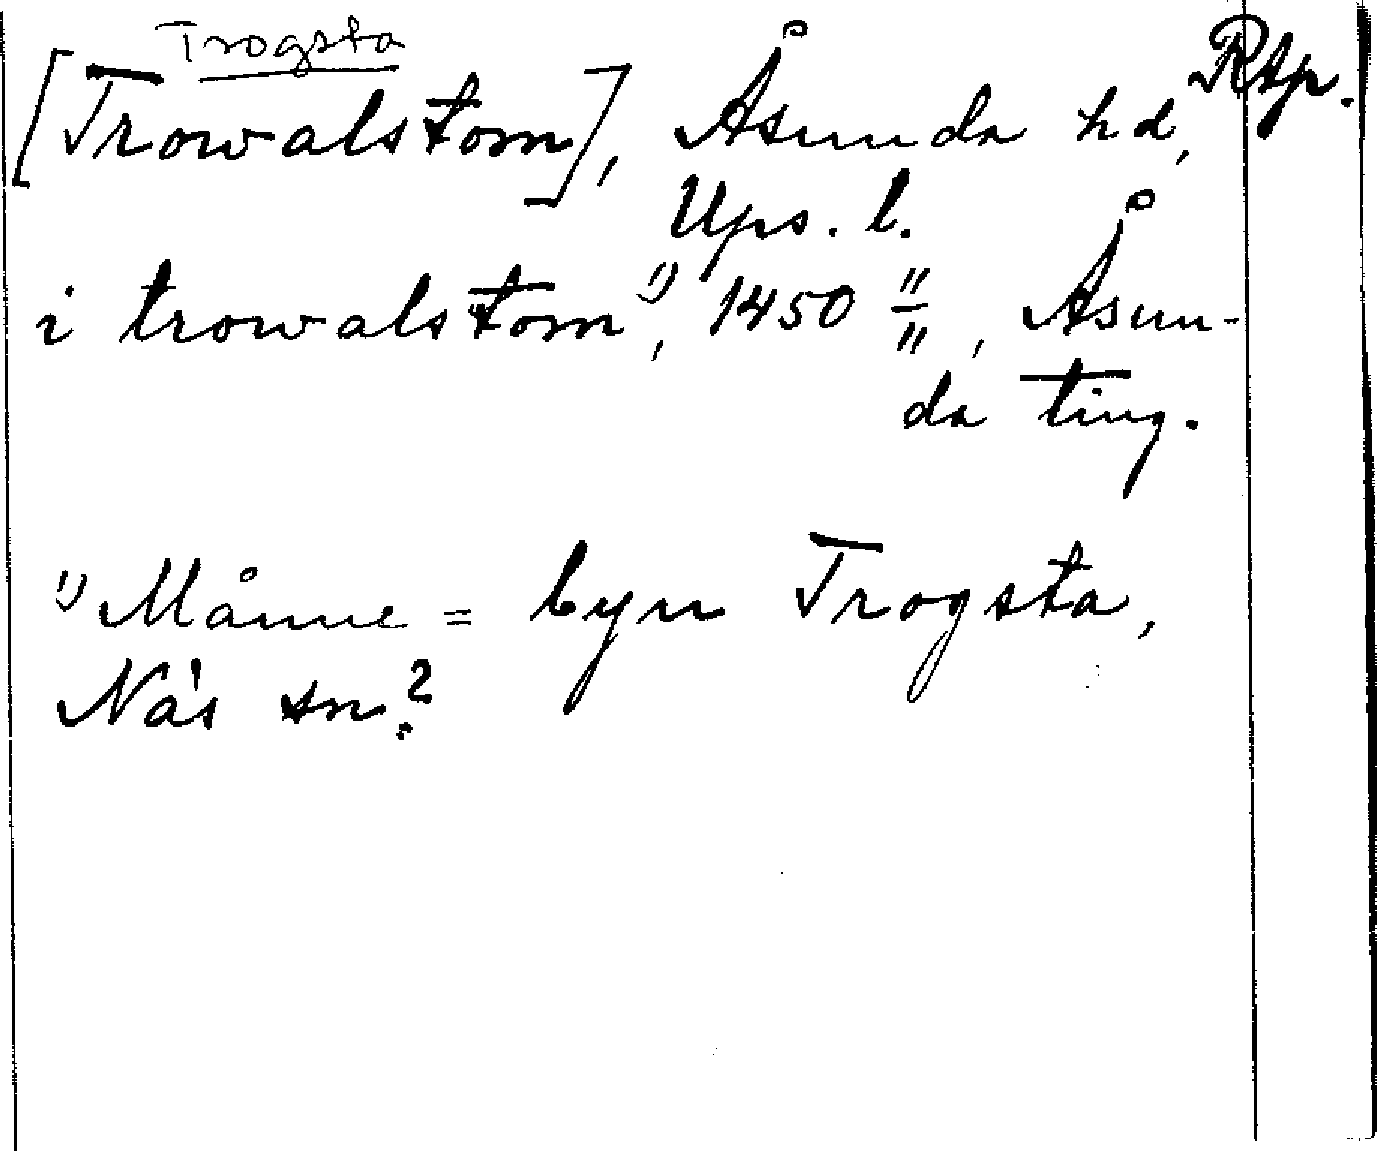 Trogsta
[Trowalstom], Åsunda hd, Rtp.
Ups. l.
i trowalstom¹⁾, 1450 11/11, Åsun-
da ting.
¹⁾ Månne = byn Trogsta,
Näs sn?